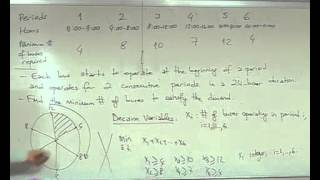 Periods 1 2 3 4 5 6
Hours
Minimum #
of buses
required
4 8 10 7 12 4
- Each bus starts to operate at the beginning of a period
and operates for 2 consecutive periods in a 24-hour duration.
- Find the minimum # of buses to satisfy the demand.
Decision Variables: Xi: # of buses operating in period i,
i=1,...,6
min X1+X2+...+X6
s.t.
X1≥4 X3≥10 X5≥12
X2≥8 X4≥7 X6≥4
Xi integer, i=1,...,6